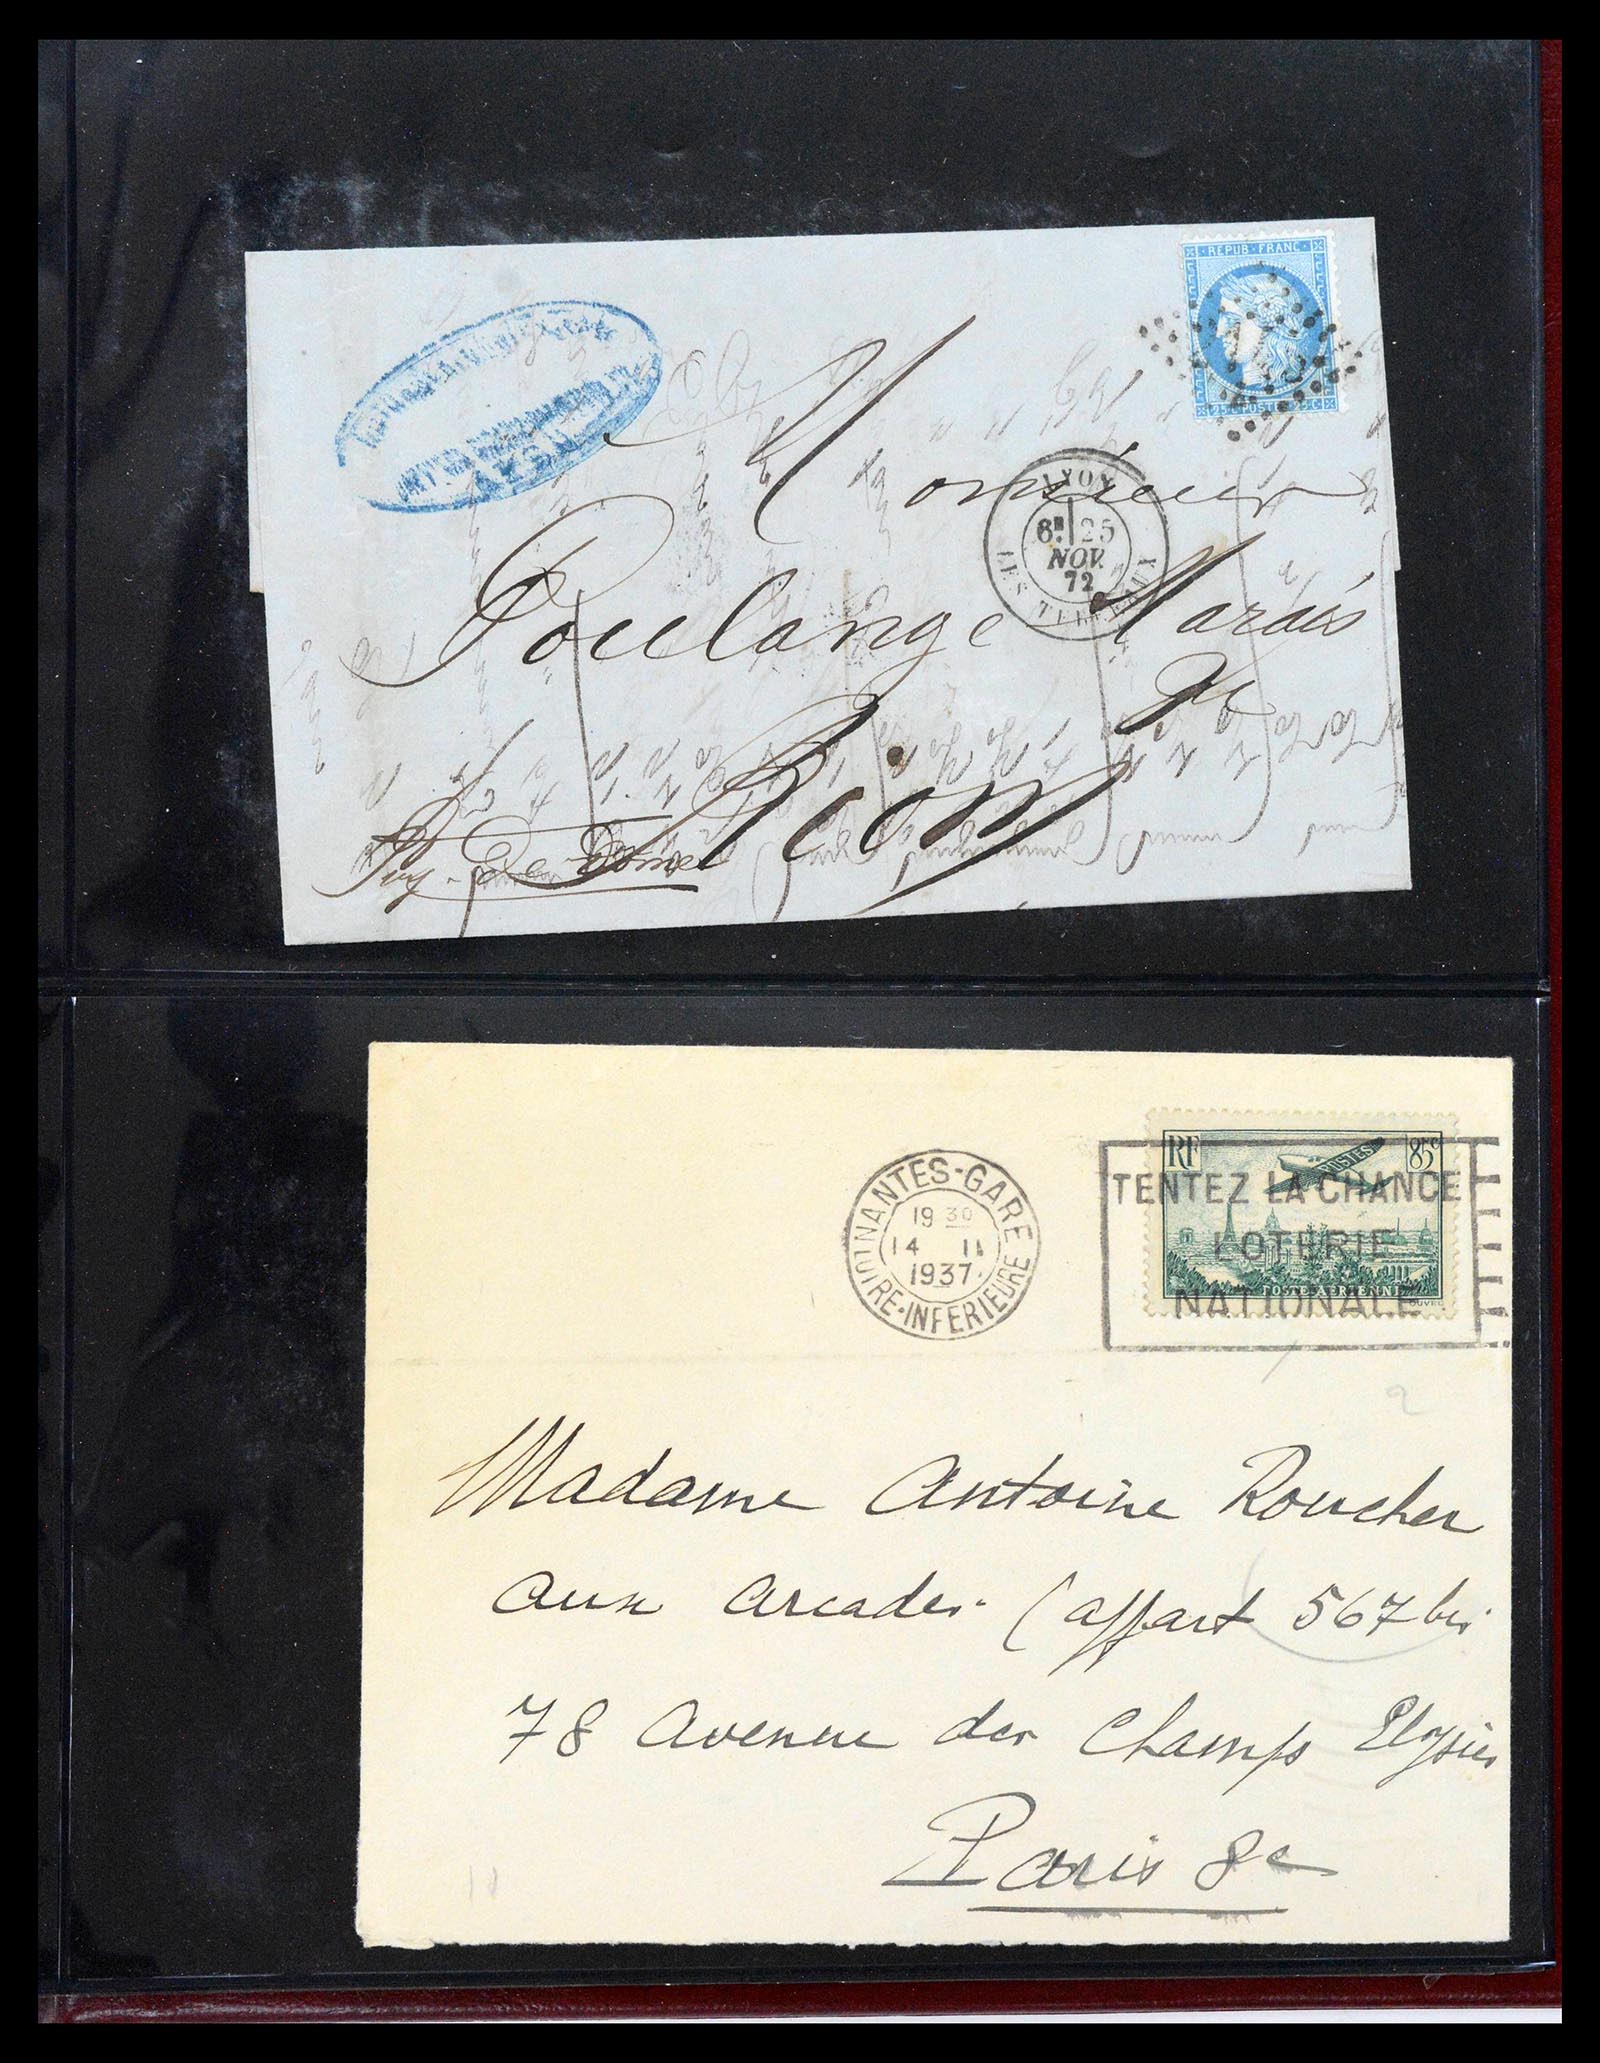 REPUB · FRANC ·
25 c POSTES 25 c
LYON
25
NOV.
72
LES TERREAUX
Monsieur
Poulange Marais
Riom
Puy-De-Dome
NANTES-GARE
19 30
14 II
1937
LOIRE-INFERIEURE
RF
POSTES
85c
TENTEZ LA CHANCE
LOTERIE
NATIONALE
POSTE AERIENNE
Madame Antoine Roucher
aux arcades (appart 567 bis
78 Avenue des Champs Elysées
Paris 8e